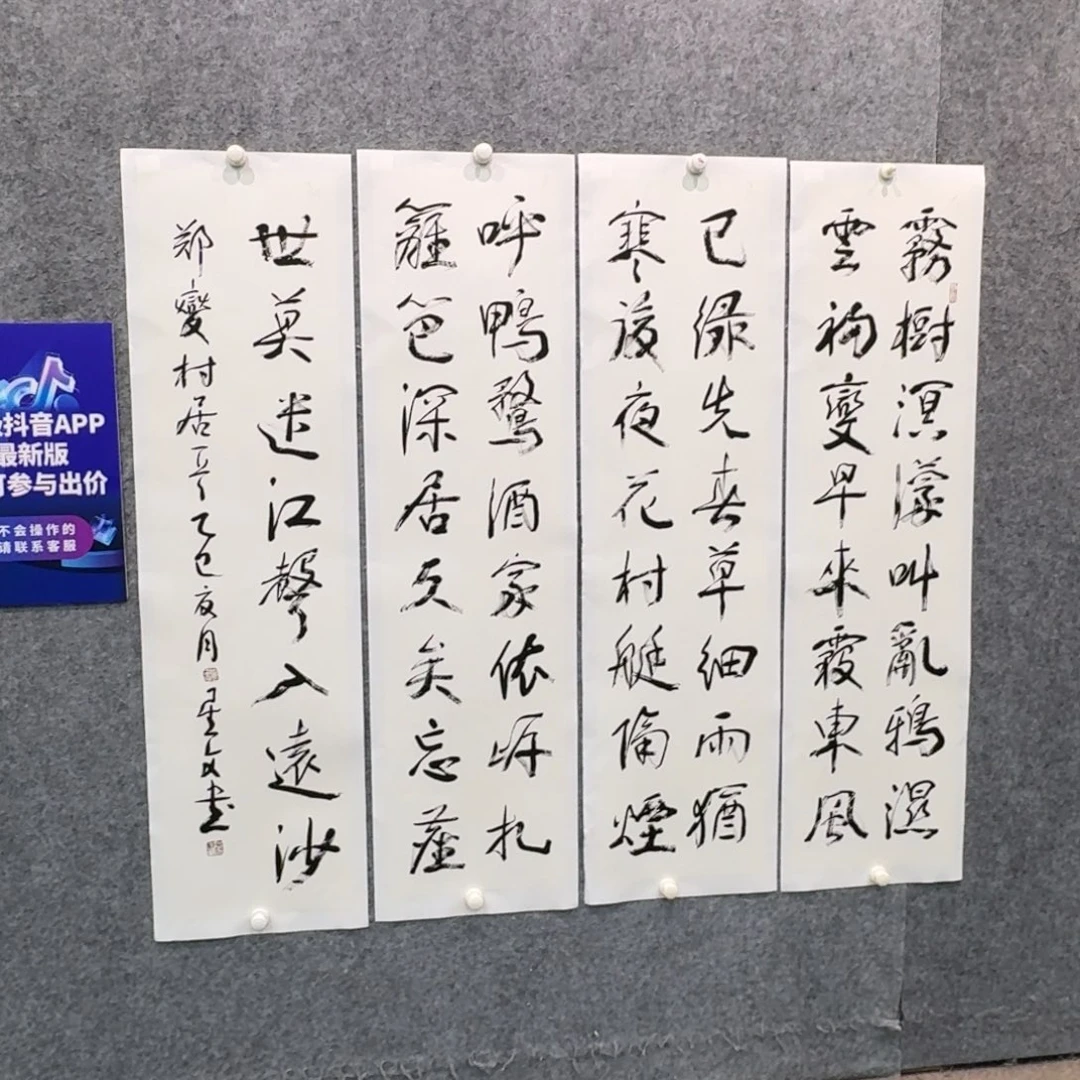 霧樹溟濛叫亂鴉濕
雲初變早來霞東風
已綠先春草細雨猶
寒後夜花村艇隔煙
呼鴨鶩酒家依岸扎
籬笆深居久矣忘塵
世莫江聲入遠沙
郑燮村居一首乙巳夏月書
抖音APP
最新版
可参与出价
不会操作的
请联系客服